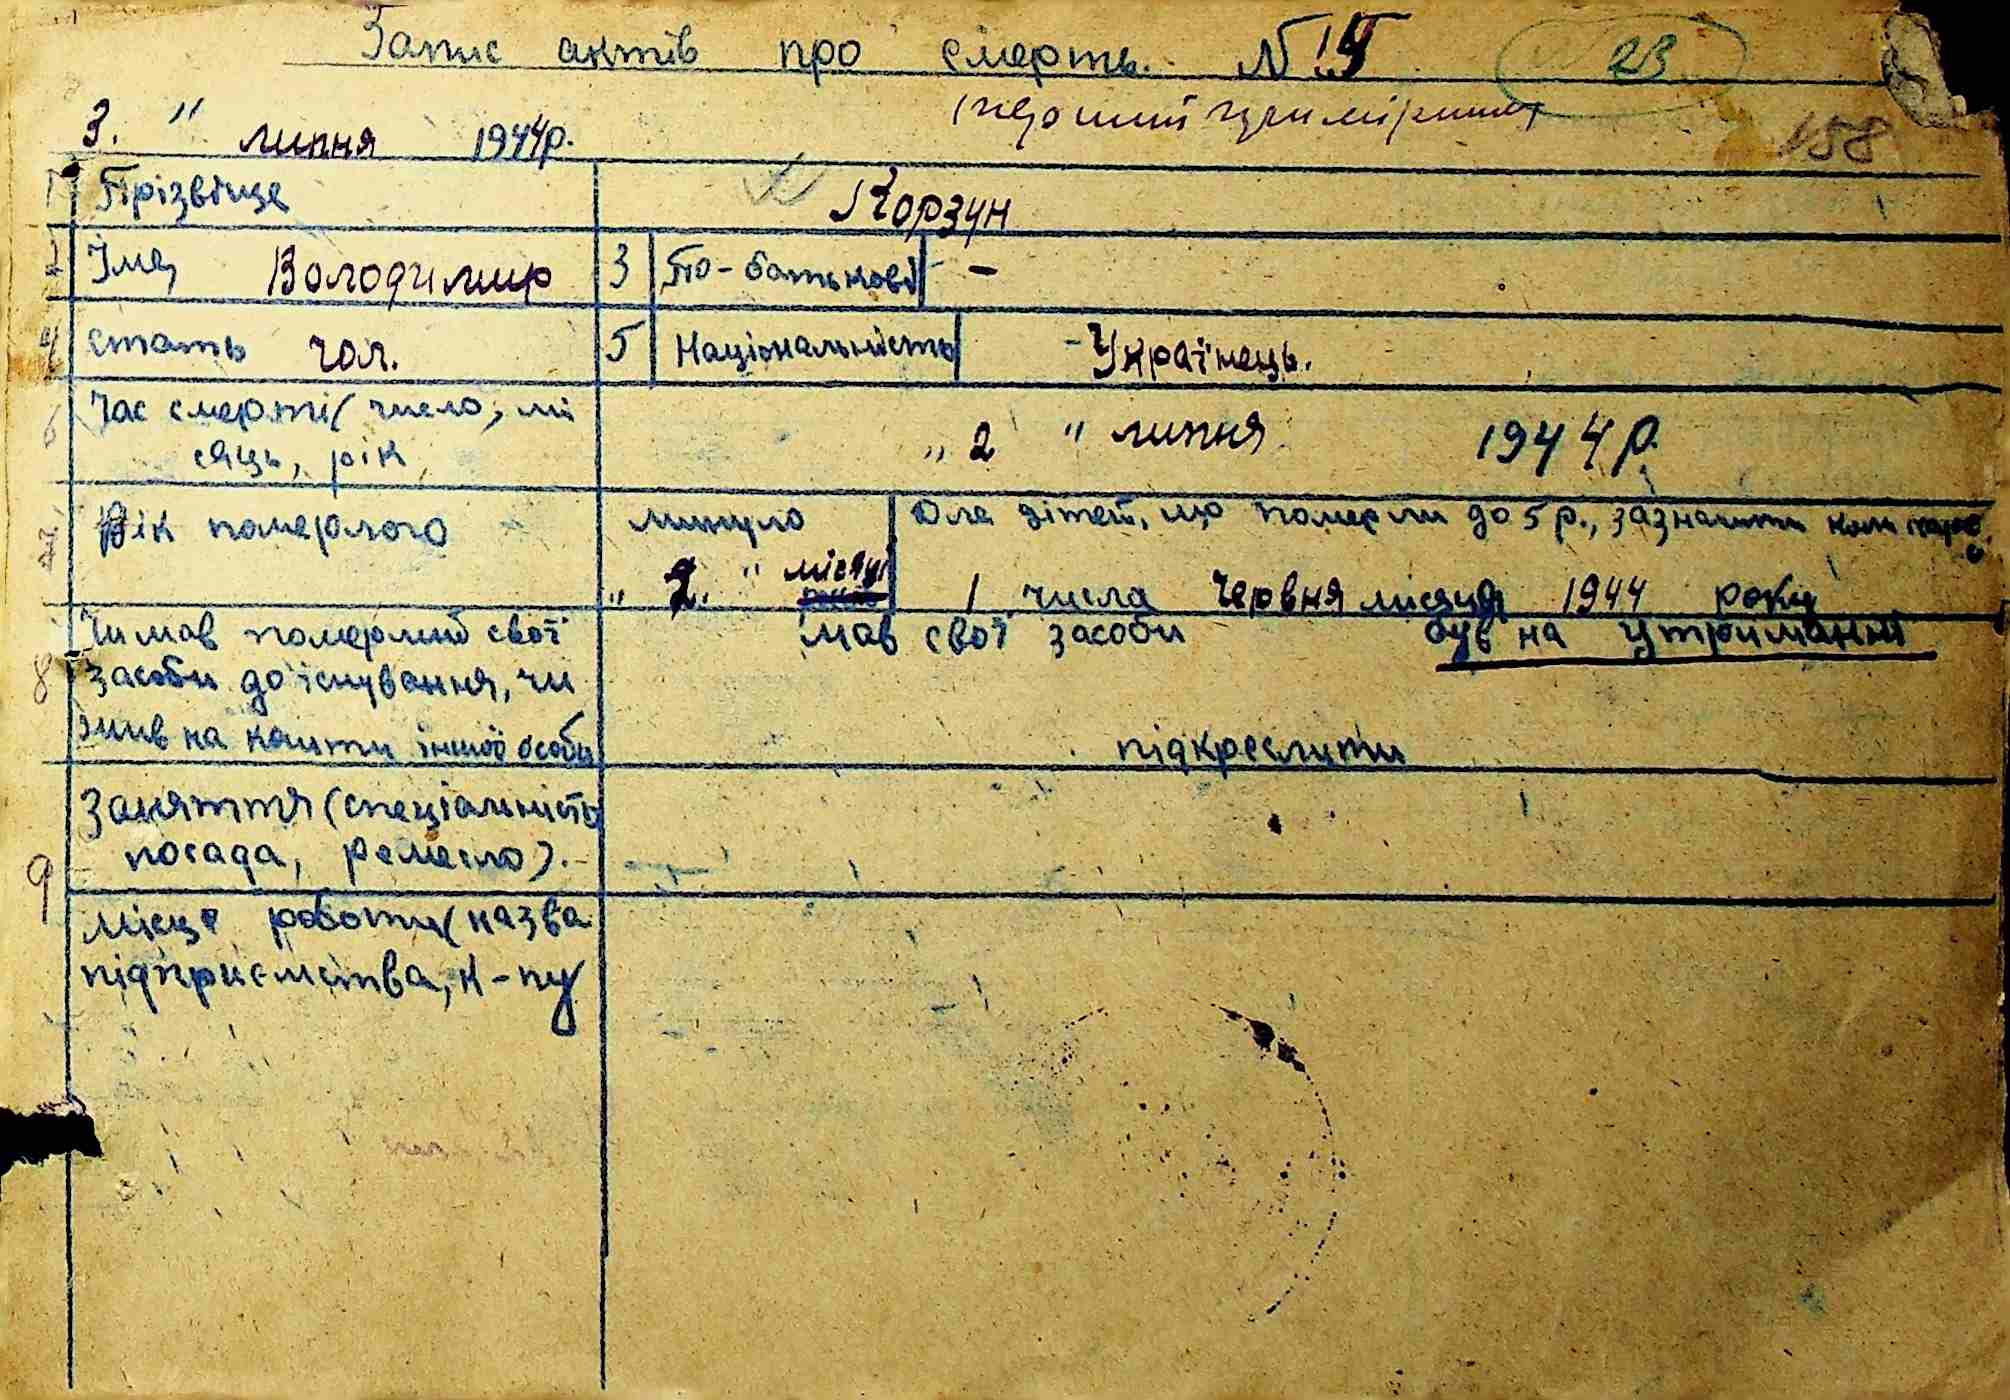 Запис актів про смерть. N 15 23
(перший примірник)
3. " липня 1944р. 158
1 Прізвище Корзун
2 Імя Володимир 3 По-батькові -
4 стать чол. 5 Національність Українець.
6 Час смерті (число, мі
сяць, рік „ 2 " липня 1944 р.
7 Вік померлого минуло Для дітей, що померли до 5 р., зазначити коли народ.
„ 2. " місяці 1 числа червня місяця 1944 року
8 Чи мав померлий свої мав свої засоби був на утриманні
засоби до існування, чи
жив на кошти іншої особи підкреслити
9 Заняття (спеціальність
посада, ремесло).
місце роботи (назва
підприємства, к-пу